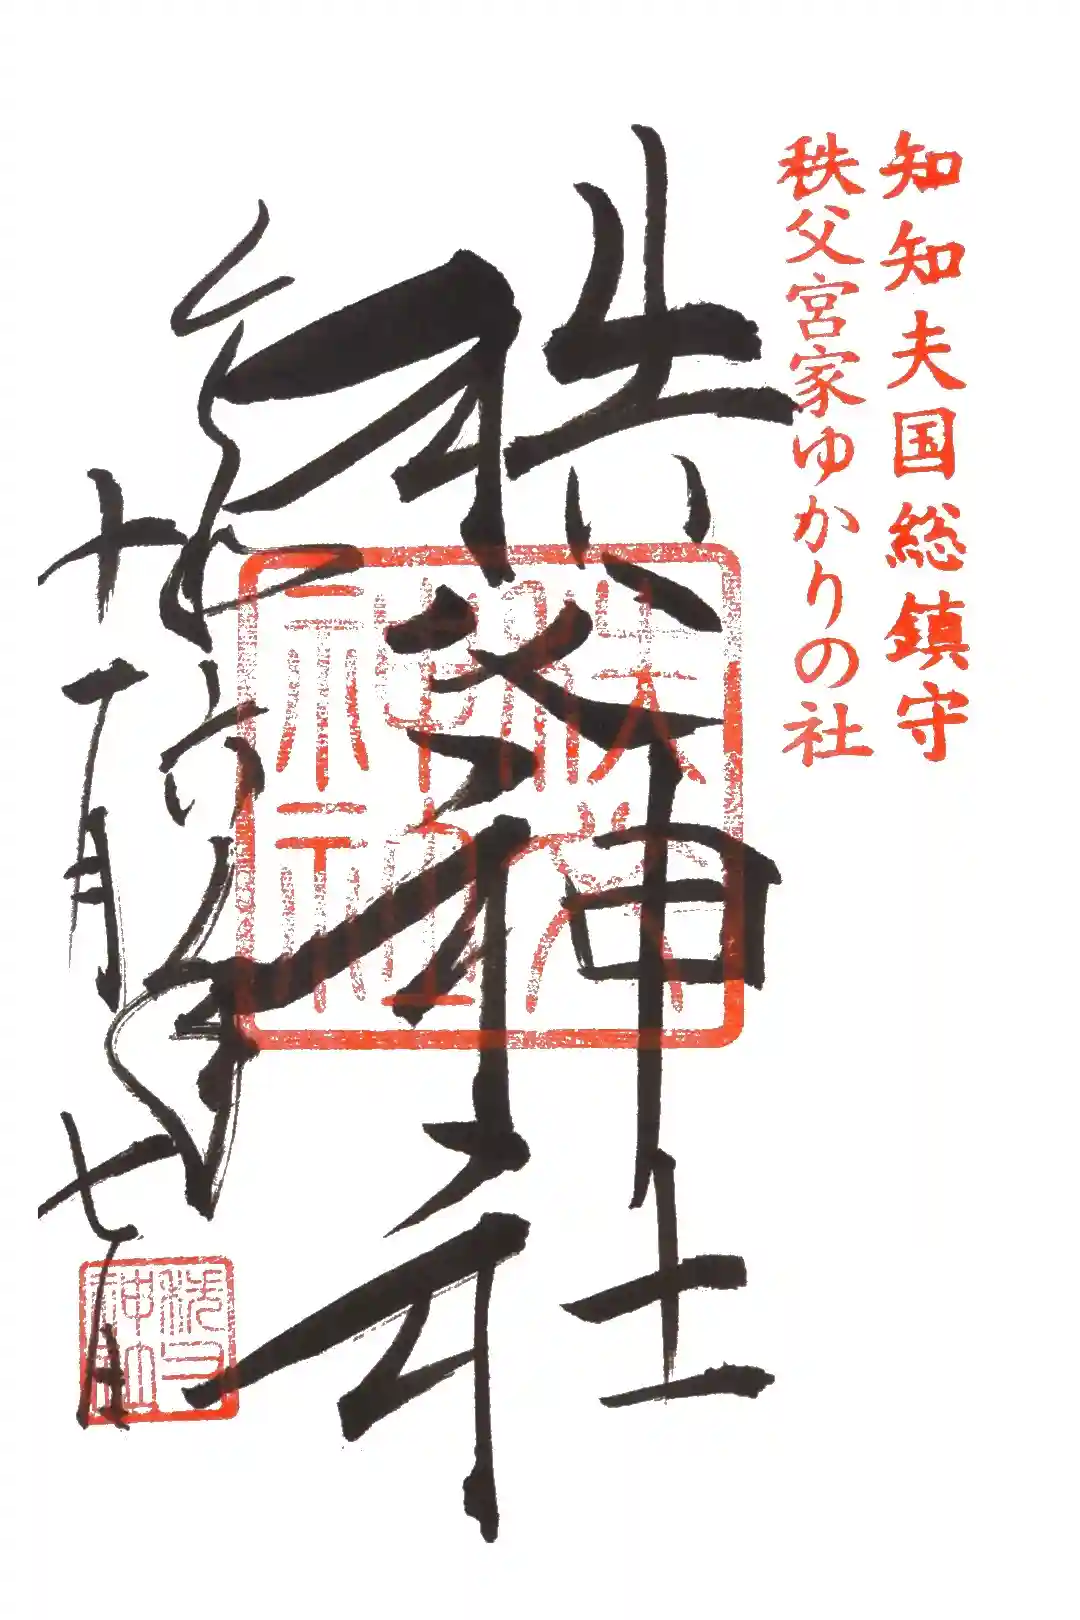 知知夫国総鎮守
秩父宮家ゆかりの社
秩父神社
令和六年
十一月七日
秩父神社
秩父神社